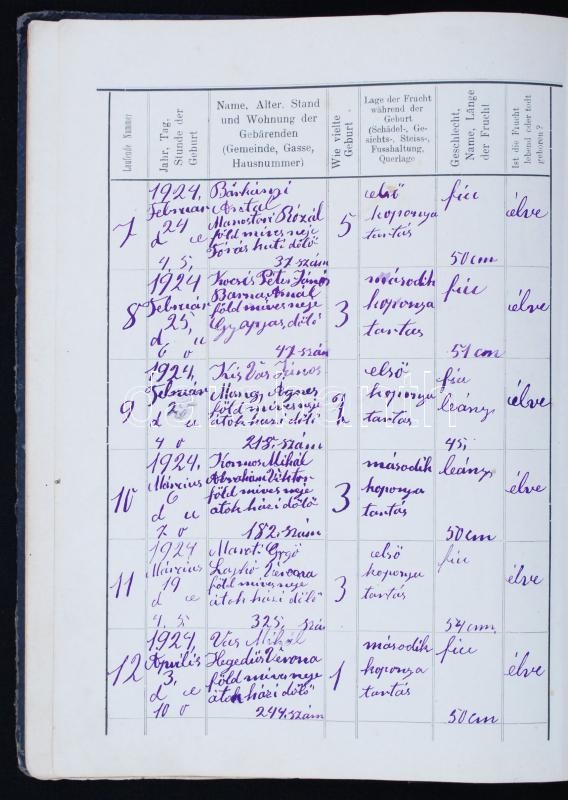 Laufende Nummer
Jahr, Tag,
Stunde der
Geburt
Name, Alter. Stand
und Wohnung der
Gebärenden
(Gemeinde, Gasse,
Hausnummer)
Wie vielte
Geburt
Lage der Frucht
während der
Geburt
(Schädel-, Ge-
sichts-, Steiss-,
Fusshaltung,
Querlage
Geschlecht,
Name, Länge
der Frucht
Ist die Frucht
lebend oder todt
geboren?
7
1924,
Február
24
d e
4, 5,
Bárkányi
Antal
Manostori Rózál
földmives neje
dölö
37 szám
5
első
koponya
tartás
fiu
50 cm
élve
8
1924
Február
25,
d u
6 o
Kocsis Péter János
Barna Amál
földmives neje
Gyapjas, dölö
47 szám
3
második
koponya
tartás
fiu
51 cm
élve
9
1924,
Február
d u
4 o
Kis Vas János
Mong Agnes
földmives neje
átok házi dölö
218. szám
1
első
koponya
tartás
fiu
leány
45,
élve
10
1924,
Március
6
d u
7 o
Kormos Mihál
Abraham Viktor
földmives neje
átok házi dölö
182. szám
3
második
koponya
tartás
leány
50 cm
élve
11
1924
Március
19
d e
4, 5
Maroti Gergő
Lajkó Verona
földmives neje
átok házi dölö
325, szá
3
első
koponya
tartás
fiu
54 cm
élve
12
1924
Április
3,
d e
10 o
Vas Mihál
Hegedüs Verona
földmives neje
átok házi dölö
244. szám
1
második
koponya
tartás
fiu
50 cm
élve